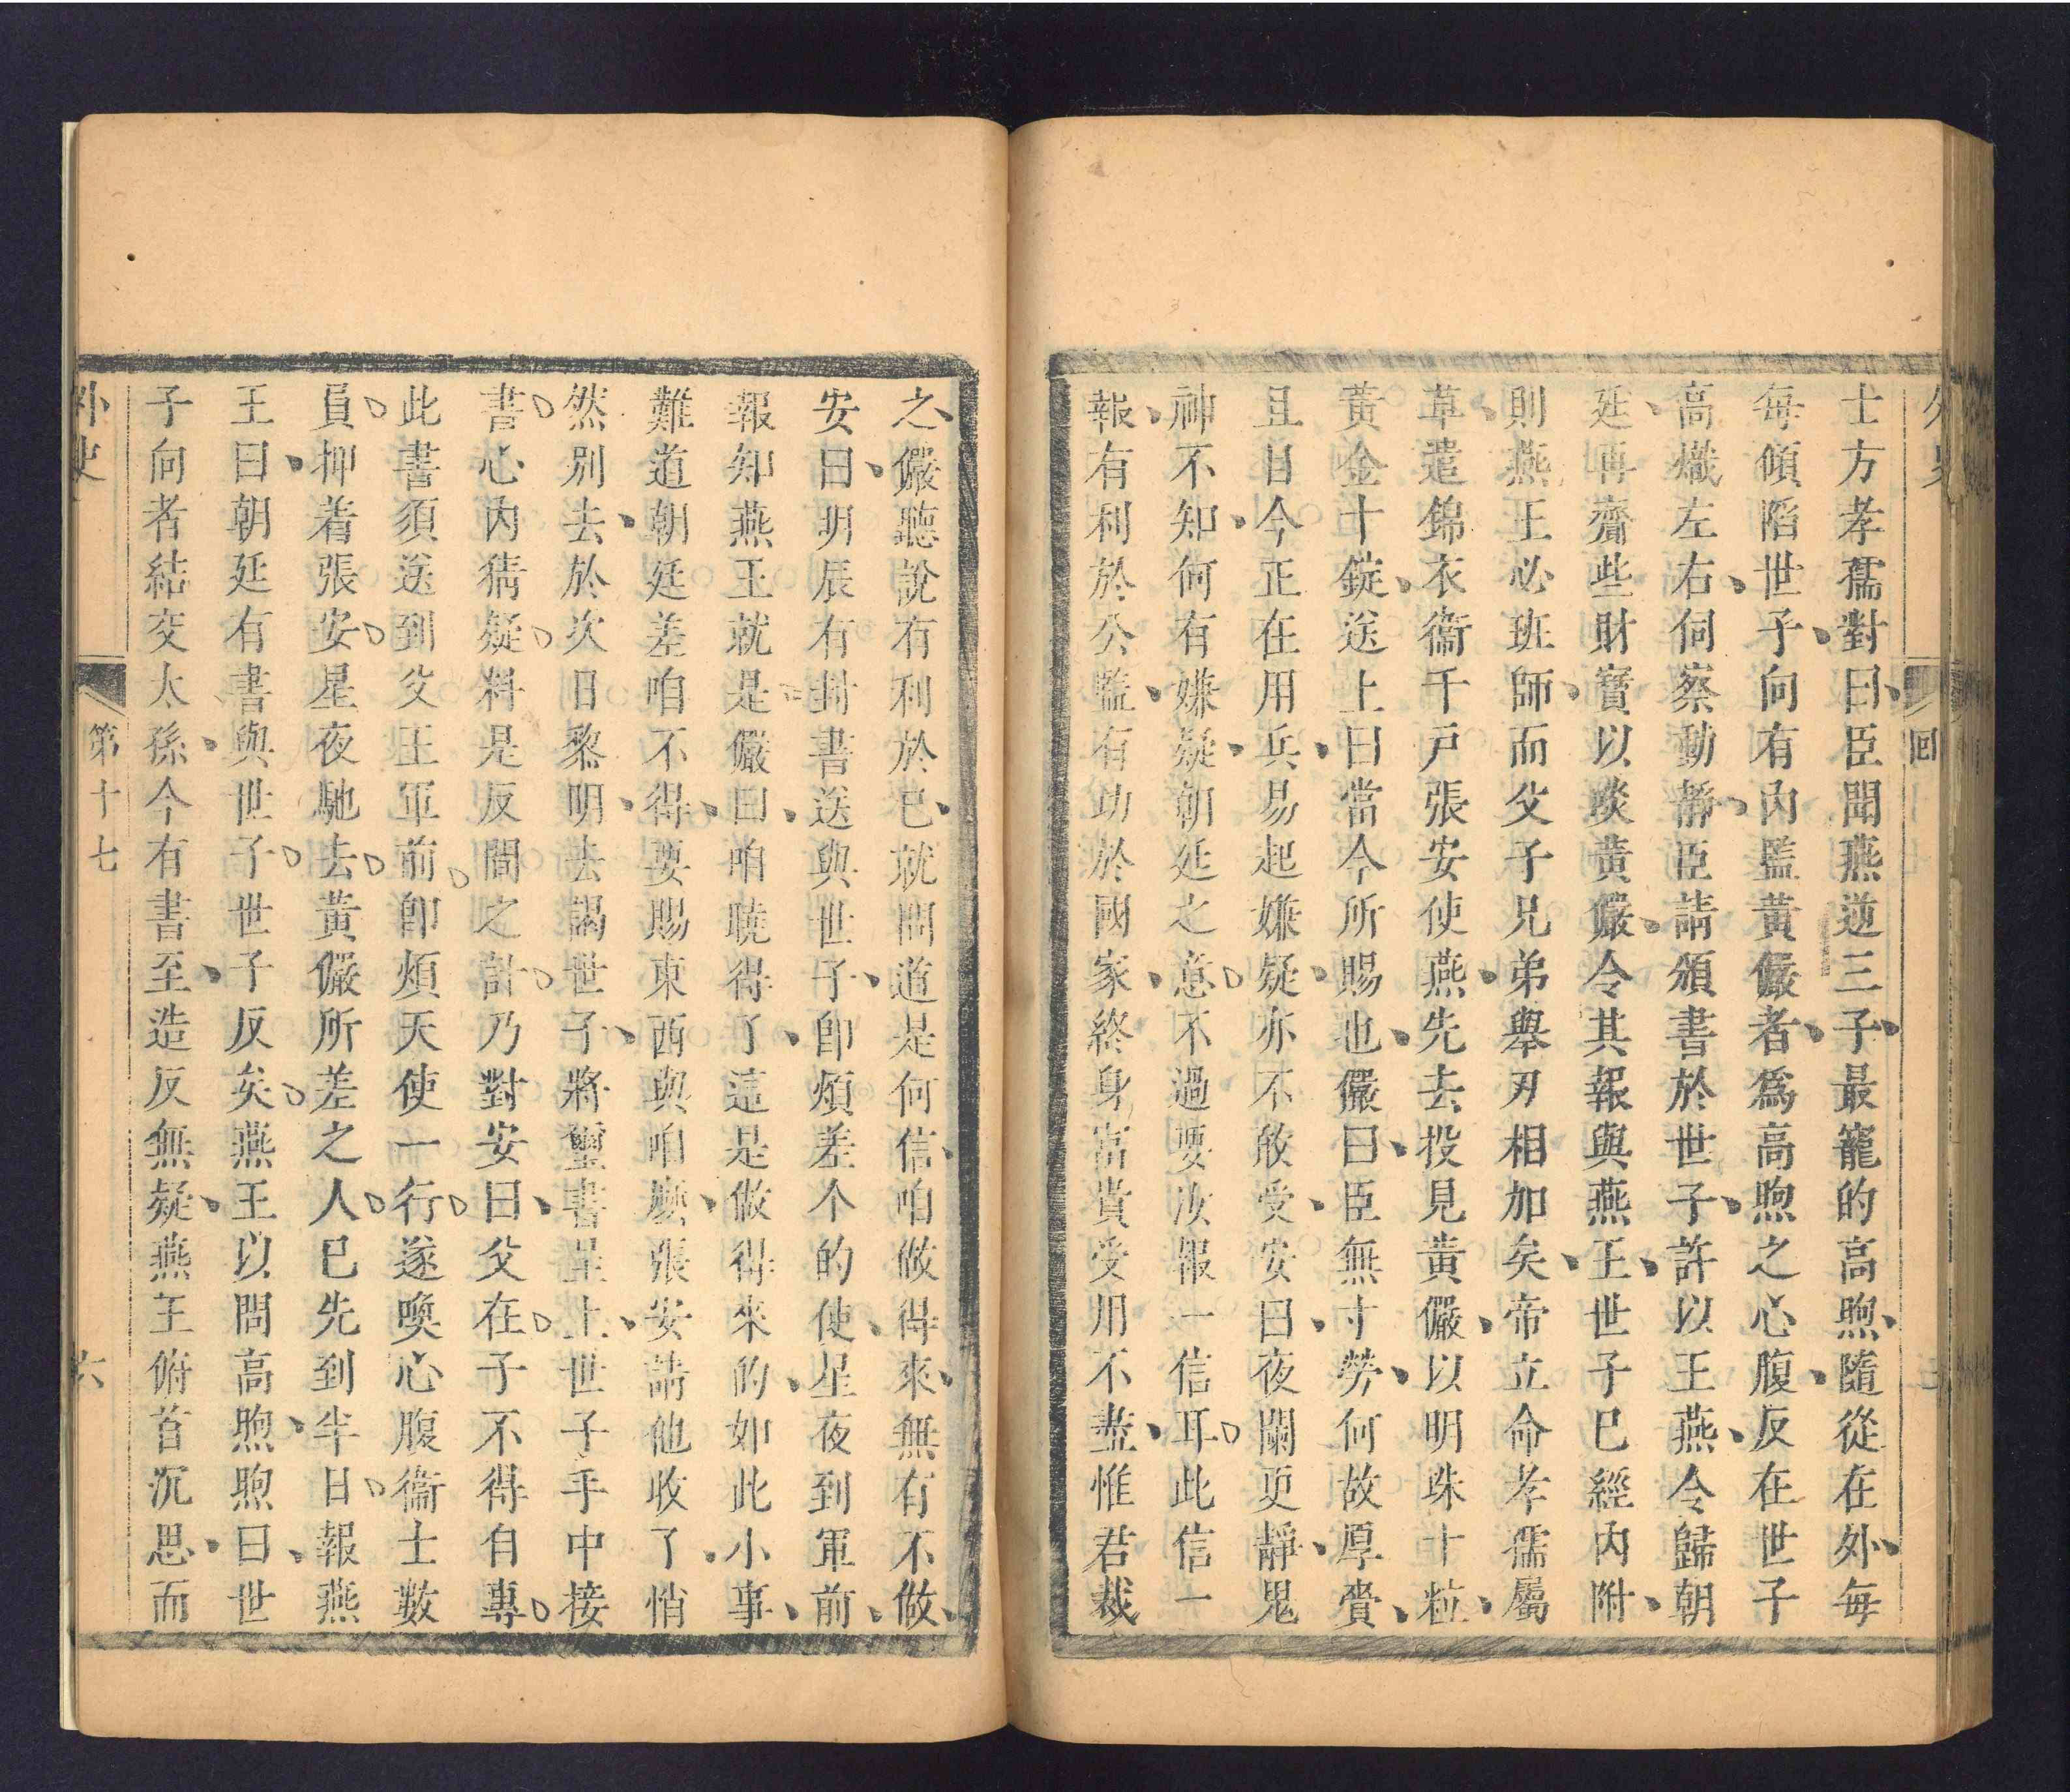 士方孝孺對曰臣聞燕逆三子最寵的高煦隨從在外每
每傾陷世子向有內監黃儼者爲高煦之心腹反在世子
高熾左右伺察動靜臣請頒書於世子許以王燕令歸朝
廷再齎些財寶以啖黃儼令其報與燕王世子已經內附
則燕王必班師而父子兄弟舉刃相加矣帝立命孝孺屬
草遣錦衣衞千戶張安使燕先去投見黃儼以明珠十粒
黃金十錠送上曰當今所賜也儼曰臣無寸勞何故厚賫
且目今正在用兵易起嫌疑亦不敢受安曰夜闌更靜鬼
神不知何有嫌疑朝廷之意不過要汝報一信耳此信一
報有利於公監有功於國家終身富貴受用不盡惟君裁
之儼聽說有利於已就問道是何信咱做得來無有不做
安曰明辰有封書送與世子卽煩差个的使星夜到軍前
報知燕王就是儼曰咱曉得了這是做得來的如此小事
難道朝廷差咱不得要賜東西與咱麽張安請他收了悄
然別去於次日黎明去謁世子將璽書呈上世子手中接
書心內猜疑料是反間之計乃對安曰父在子不得自專
此書須送到父王軍前卽煩天使一行遂喚心腹衞士數
員押着張安星夜馳去黃儼所差之人已先到半日報燕
王曰朝廷有書與世子世子反矣燕王以問高煦煦曰世
子向者結交太孫今有書至造反無疑燕王俯首沉思而
外史
第十七
六
外史
回